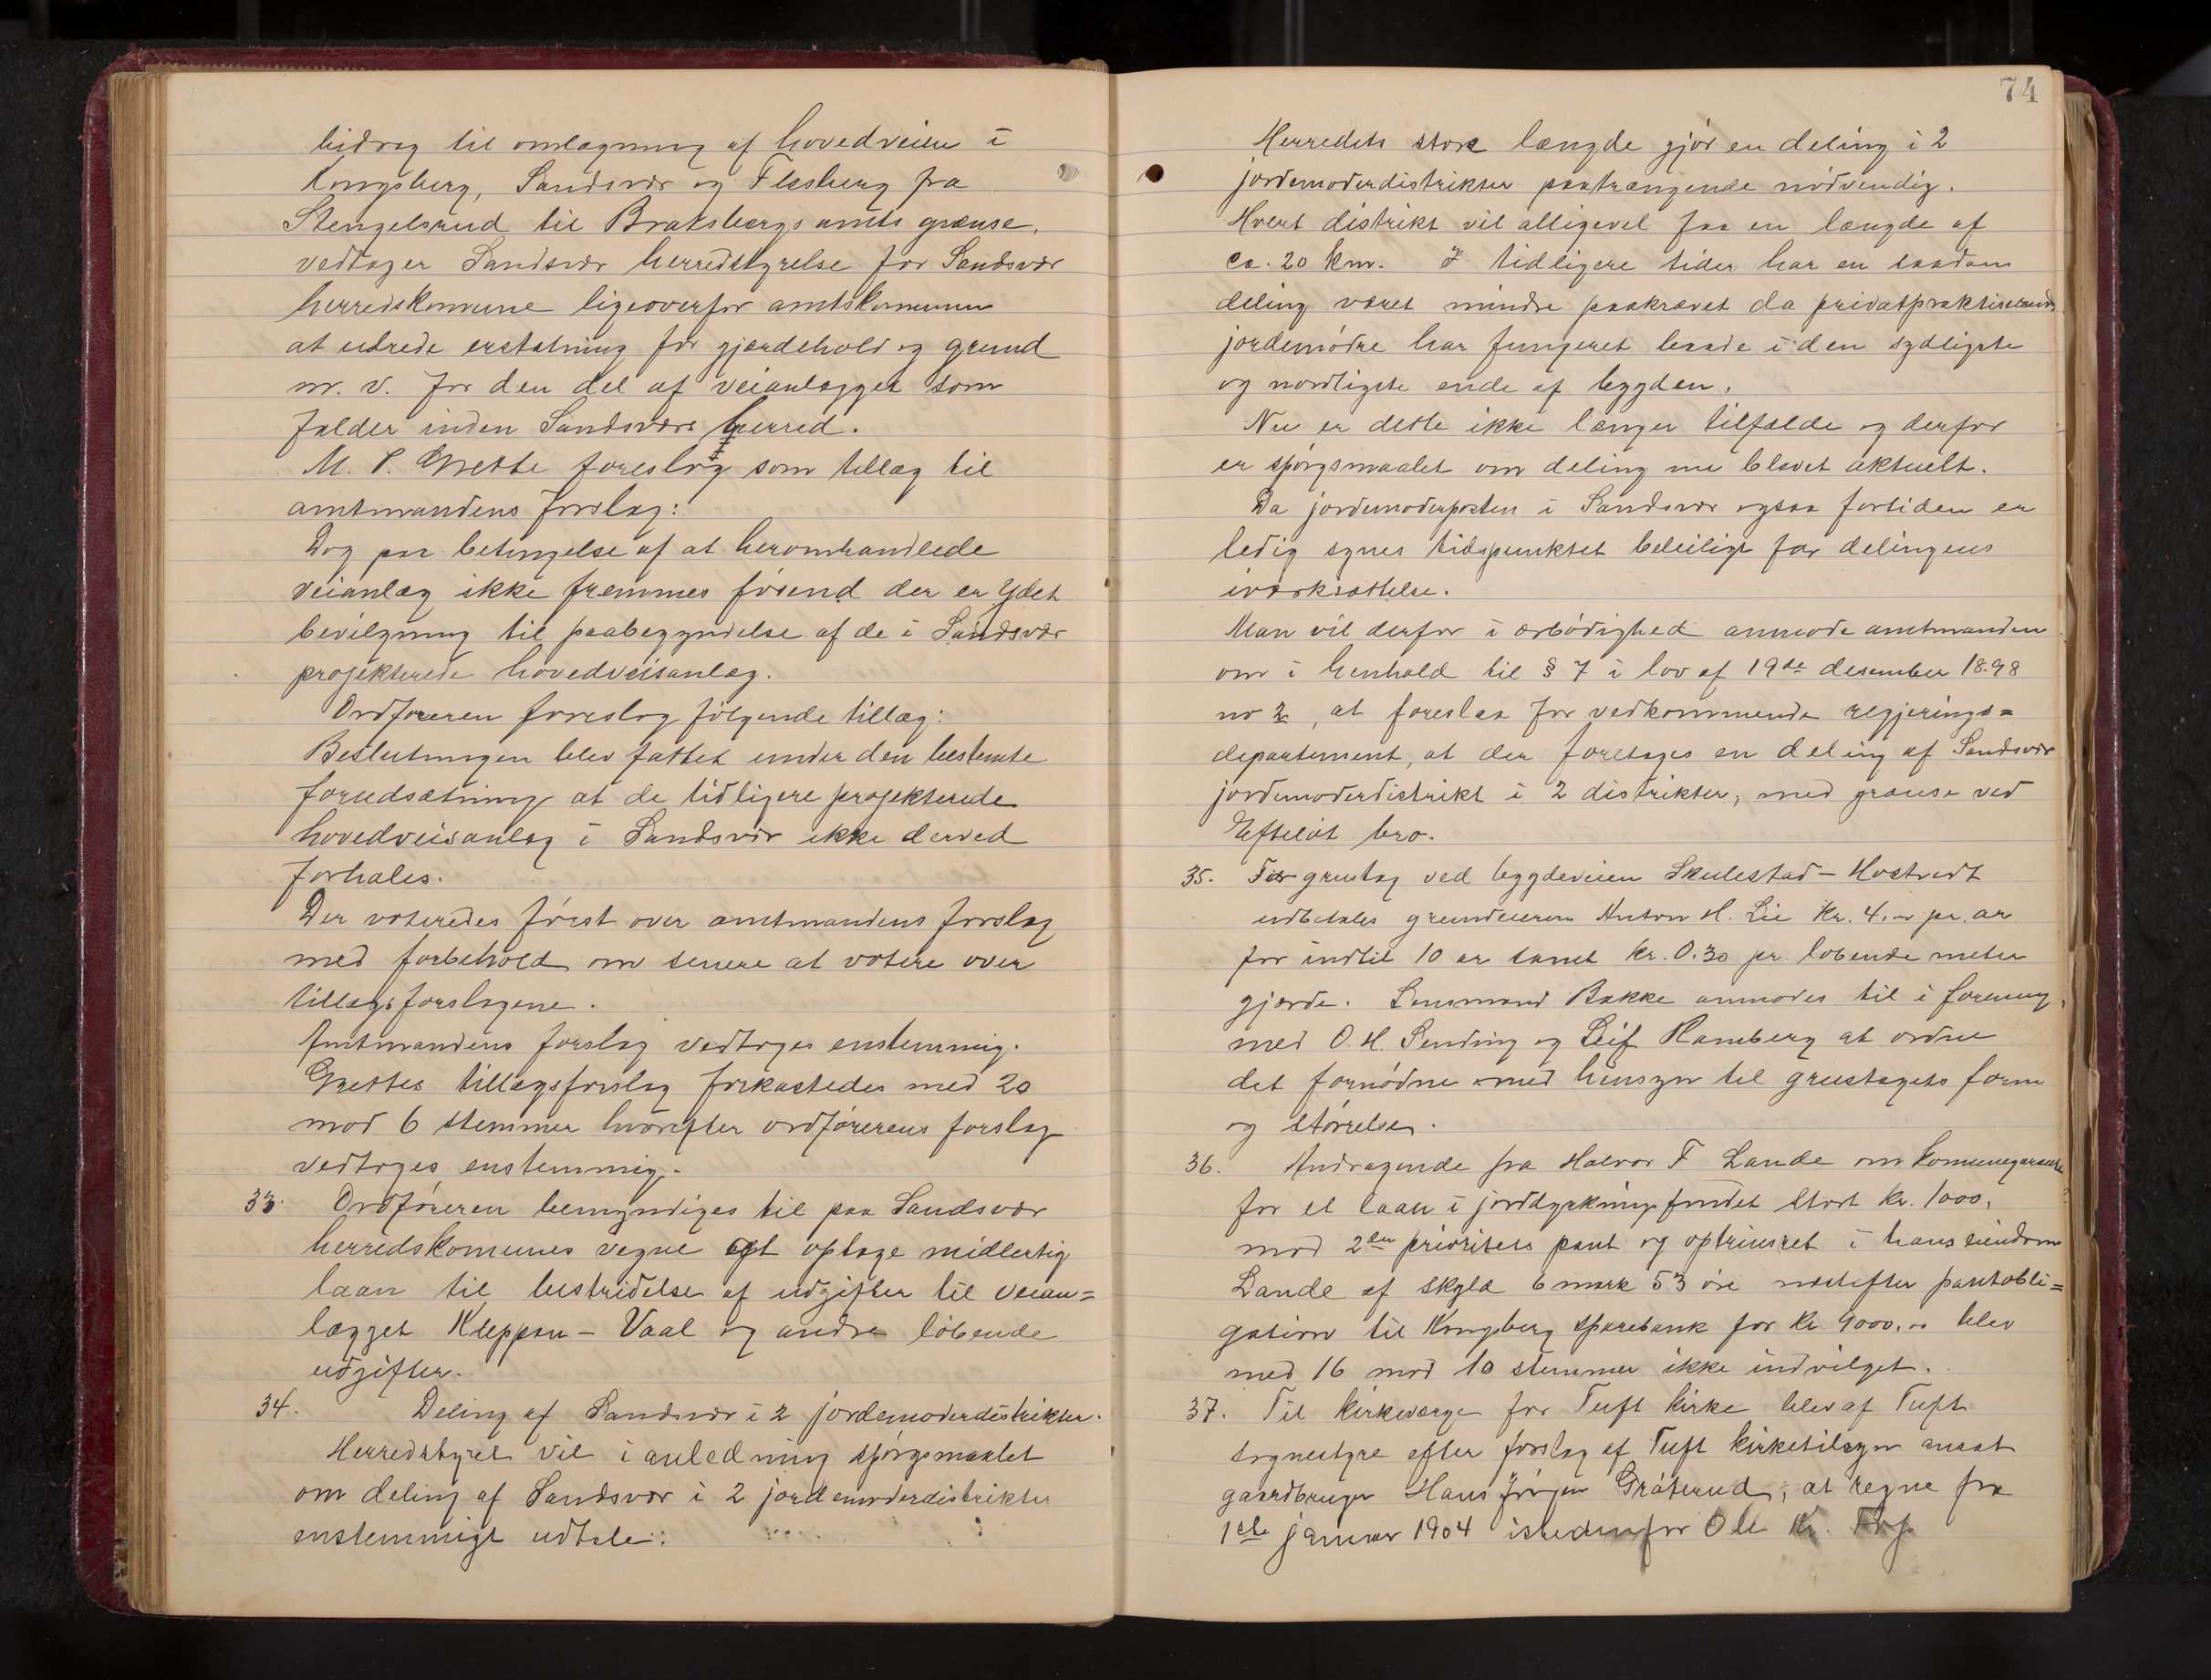 bidrag til omlægning af hovedveien i
Kongsberg, Sandsvær og Flesberg fra
Stengelsrud til Bratsbergs amts grænse,
vedtager Sandsvær herredstyrelse for Sandsvær
herredskomune ligeoverfor amtskomunen
at udrede erstatning for gjærdehold og grund
m. v. for den del af veianlægget som
falder inden Sandsværs herred.
M. P. Grette foreslog som tillæg til
amtmandens forslag:
Dog paa betingelse af at heromhandlede
veianlæg ikke fremmes førend der er ydet
bevilgning til paabegyndelse af de i Sandsvær
projekterede hovedveisanlæg.
Ordføreren foreslog følgende tillæg:
Beslutningen blev fattet under den bestemte
forudsætning at de tidligere projekterede
hovedveisanlæg i Sandsvær ikke derved
forhales.
Der voteredes først over amtmandens forslag
med forbehold om senere at votere over
tillægsforslagene.
Amtmandens forslag vedtoges enstemmig.
Grettes tillægsforslag forkastedes med 20
mod 6 stemmer hvorefter ordførerens forslag
vedtoges enstemmig.
33. Ordføreren bemyndiges til paa Sandsvær
herredskomunes vegne at optage midlertig
laan til bestridelse af udgifter til veian=
lægget Kleppan - Vaal og andre løbende
udgifter.
34. Deling af Sandsvær i 2 jordemoderdistrikter.
Herredstyret vil i anledning spørgsmaalet
om deling af Sandsvær i 2 jordemoderdistrikter
enstemmigt udtale:
74
Herredets store længde gjør en deling i 2
jordemoderdistrikter paatrængende nødvendig.
Hvert distrikt vil alligevel faa en længde af
ca. 20 km. I tidligere tider har en saadan
deling været mindre paakrævet da privatpraktiserende
jordemødre har fungeret baade i den sydligste
og nordligste ende af bygden.
Nu er dette ikke længer tilfælde og derfor
er spørgsmaalet om deling nu blevet aktuelt.
Da jordemoderposten i Sandsvær ogsaa fortiden er
ledig synes tidspunktet beleiligt for delingens
iværksættelse.
Man vil derfor i ærbødighed anmode amtmanden
om i henhold til § 7 i lov af 19de desember 1898
no 2, at foreslaa for vedkommende regjerings=
departement, at der foretages en deling af Sandsvær
jordemoderdistrikt i 2 distrikter, med grænse ved
Efteløt bro.
35. For grustag ved bygdeveien Skulestad - Hostvedt
udbetales grundeieren Anton H. Lie Kr. 4.- pr. ar
for indtil 10 ar samt kr. 0.30 pr. løbende meter
gjærde. Lensmand Bakke anmodes til i forening
med O. H. Sending og Leif Ramberg at ordne
det fornødne med hensyn til grustagets form
og størrelse.
36. Andragende fra Halvor F Lande om komunegaranti
for et laan i jorddyrkningsfondet stort kr. 1000,
mod 2den prioritets pant og optrinsret i hans eiendom
Lande af skyld 6 mark 53 øre næstefter pantobli=
gation til Kongsberg sparebank for kr. 9000.- blev
med 16 mod 10 stemmer ikke indvilget.
37. Til kirkeværge for Tuft kirke blev af Tuft
sognestyre efter forslag af Tuft kirketilsyn ansat
gaardbruger Hans Jørgen Gråterud, at regne fra
1ste januar 1904 istedenfor Ole Kr.